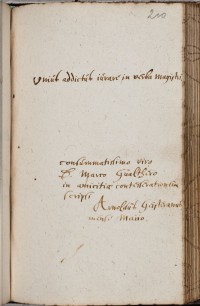 210
addictus iurare in verba magistri
consummatissimo viro
D. Marco Gualthero
in amicitiæ contestationem
scripsi
Arnoldus